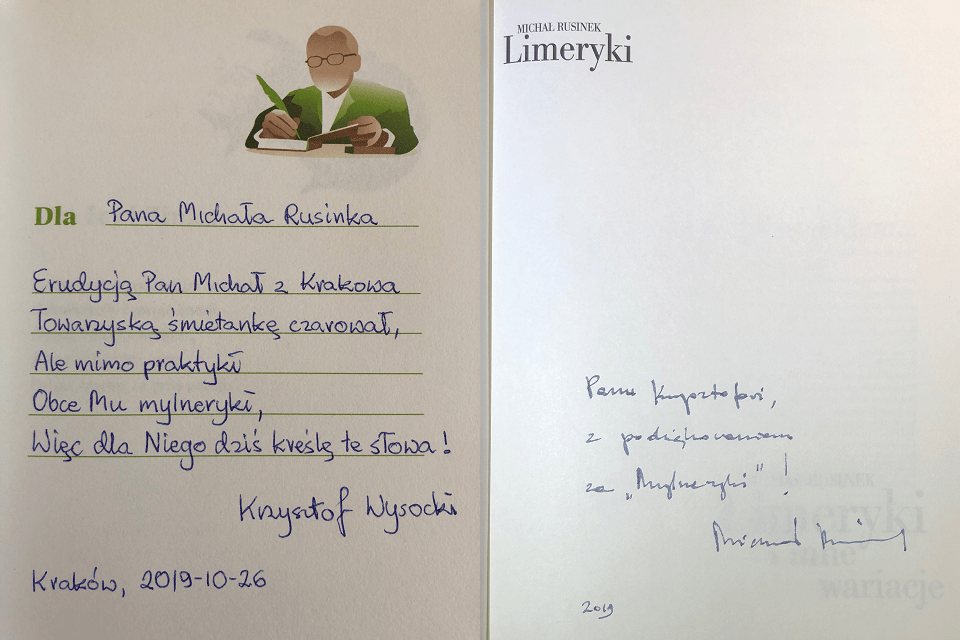 Dla Pana Michała Rusinka
Erudycją Pan Michał z Krakowa
Towarzyską śmietankę czarował,
Ale mimo praktyki
Obce Mu mylneryki,
Więc dla Niego dziś kreślę te słowa!
Krzysztof Wysocki
Kraków, 2019-10-26
MICHAŁ RUSINEK
Limeryki
Panu Krzysztofowi,
z podziękowaniem
za „Mylneryki"!
2019
MICHAŁ RUSINEK
Limeryki
i inne
wariacje